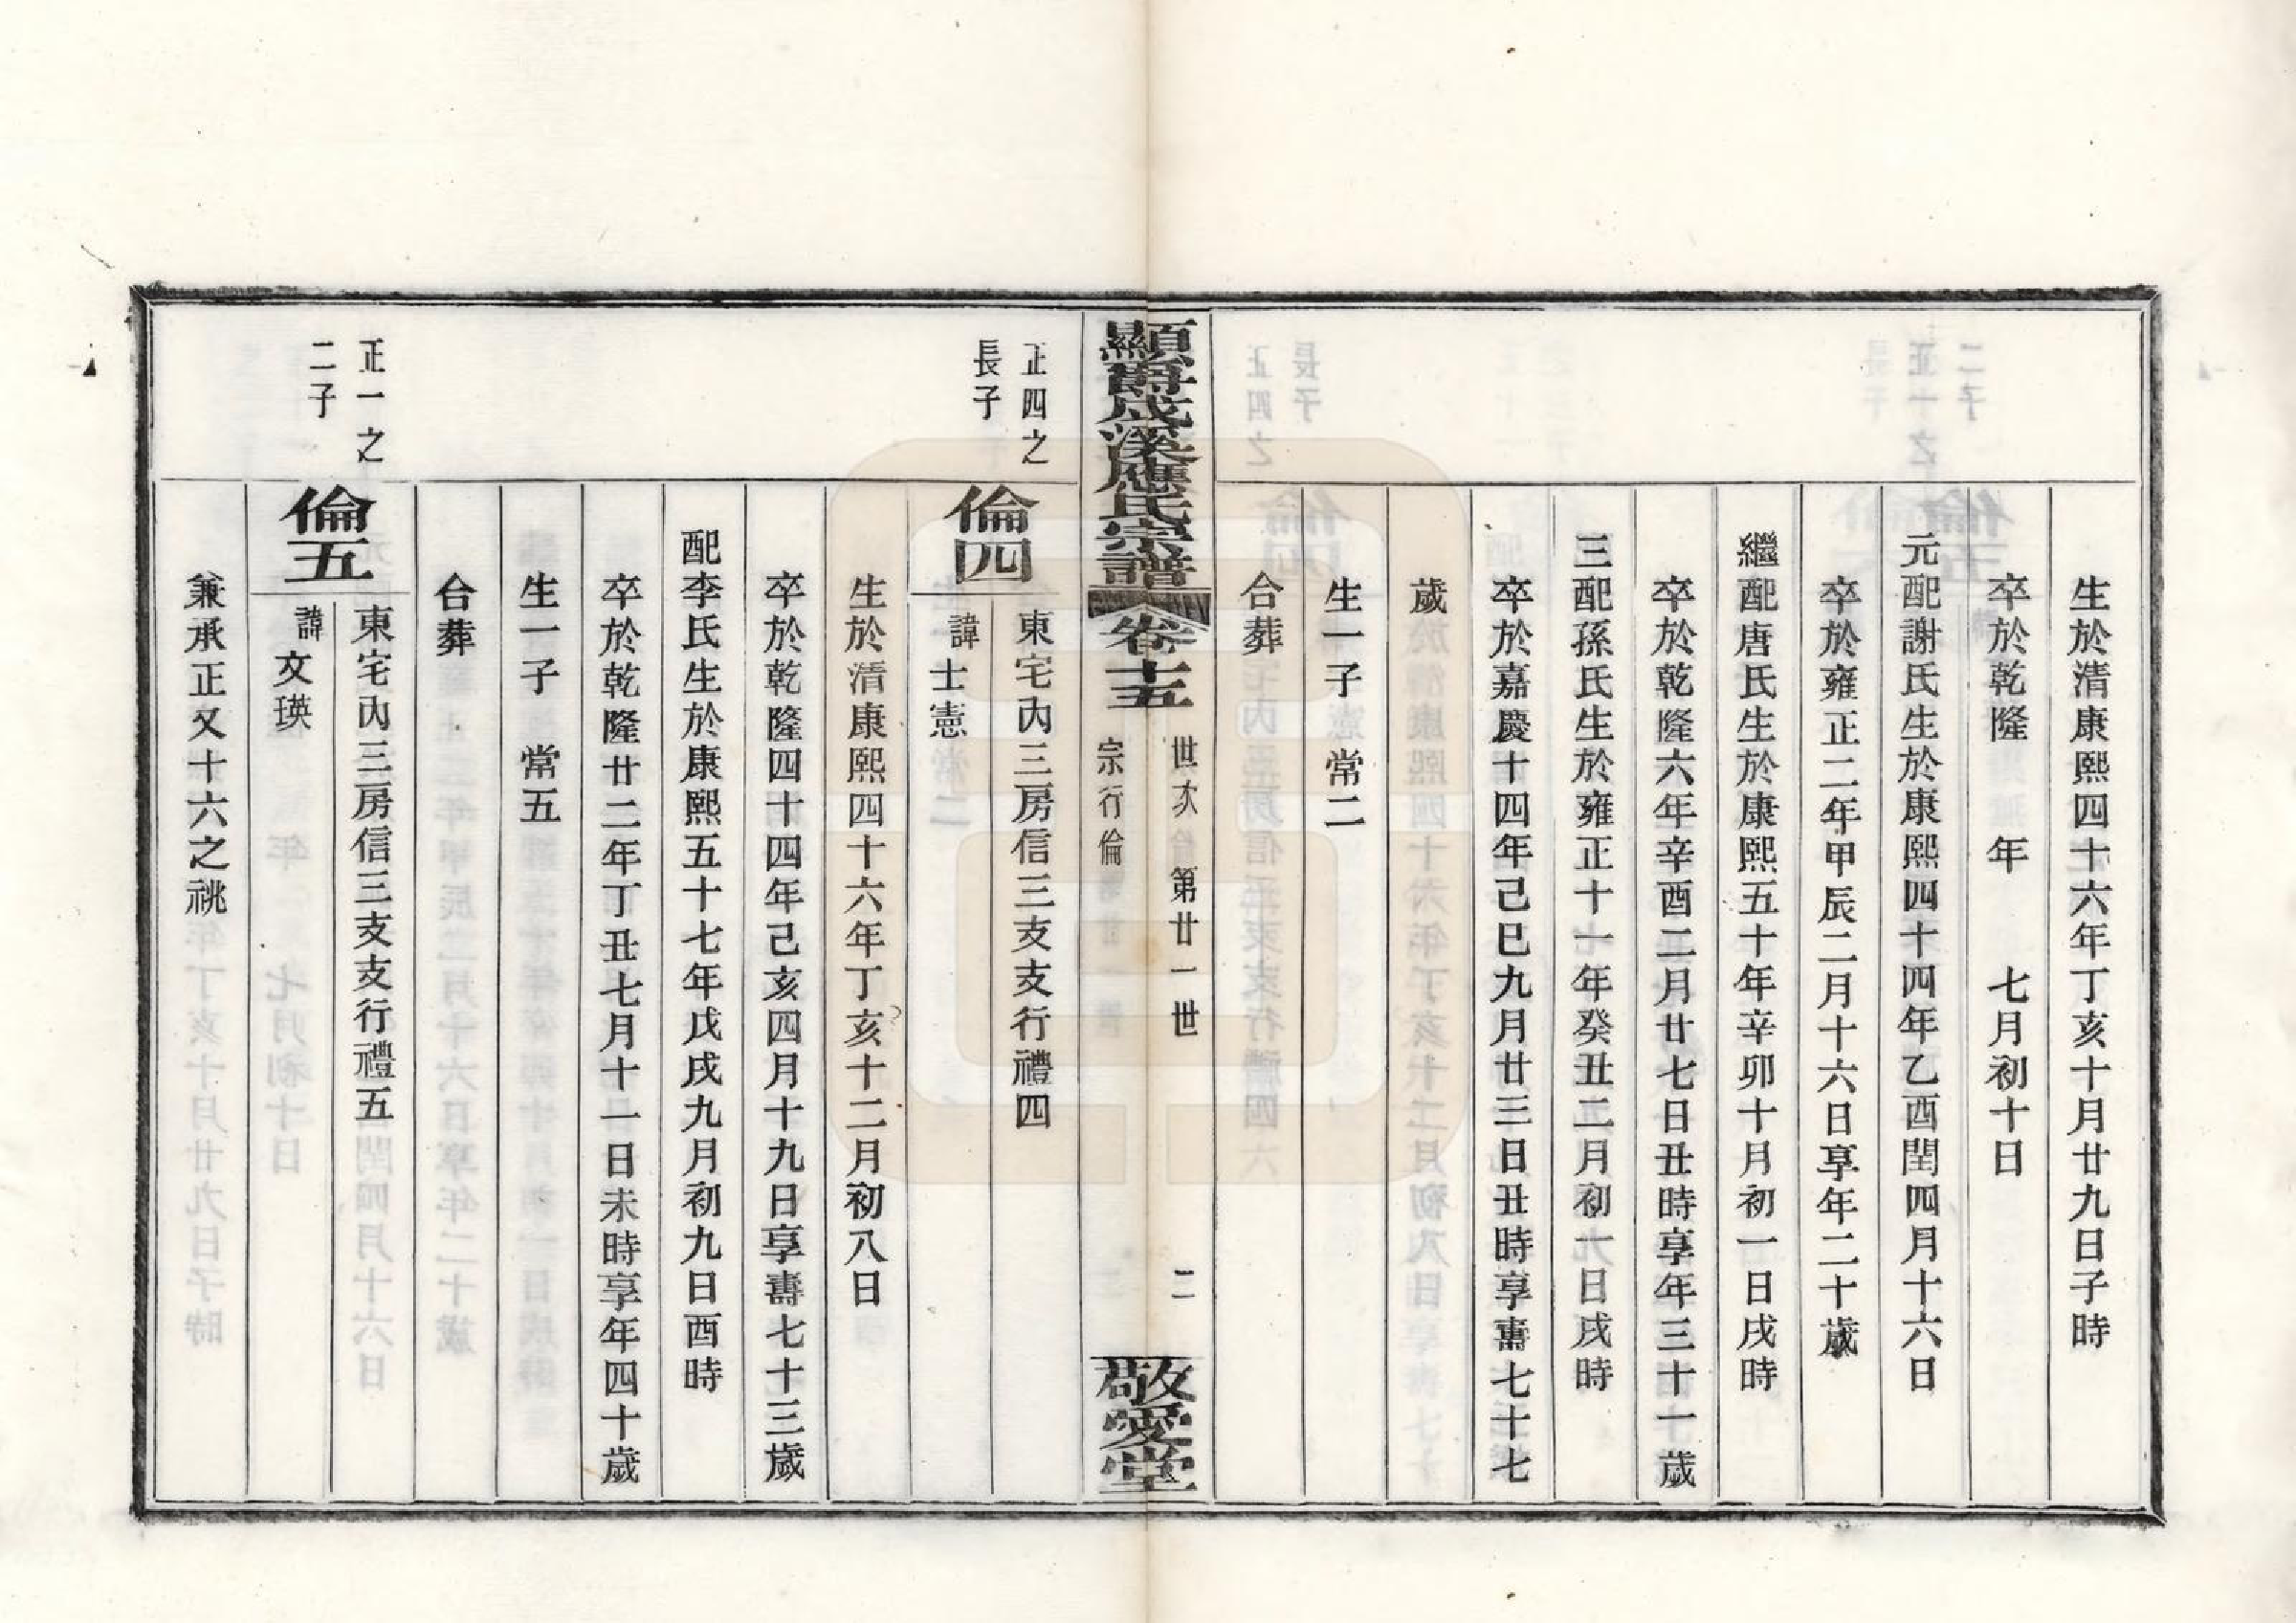 生於清康熙四十六年丁亥十月廿九日子時
卒於乾隆　年　七月初十日
元配謝氏生於康熙四十四年乙酉閏四月十六日
卒於雍正二年甲辰二月十六日享年二十歲
繼配唐氏生於康熙五十年辛卯十月初一日戌時
卒於乾隆六年辛酉二月廿七日丑時享年三十一歲
三配孫氏生於雍正十一年癸丑二月初一日戌時
卒於嘉慶十四年己巳九月廿三日丑時享壽七十七
歲
生一子　常二
合葬
顯爵成溪應氏宗譜
卷十五
世次　第廿一世
宗行倫
二
敬愛堂
正四之
長子
倫四
東宅內三房信三支支行禮四
諱士憲
生於清康熙四十六年丁亥十二月初八日
卒於乾隆四十四年己亥四月十九日享壽七十三歲
配李氏生於康熙五十七年戊戌九月初九日酉時
卒於乾隆廿二年丁丑七月十一日未時享年四十歲
生一子　常五
合葬
正一之
二子
倫五
東宅內三房信三支支行禮五
諱文瑛
兼承正又十六之祧